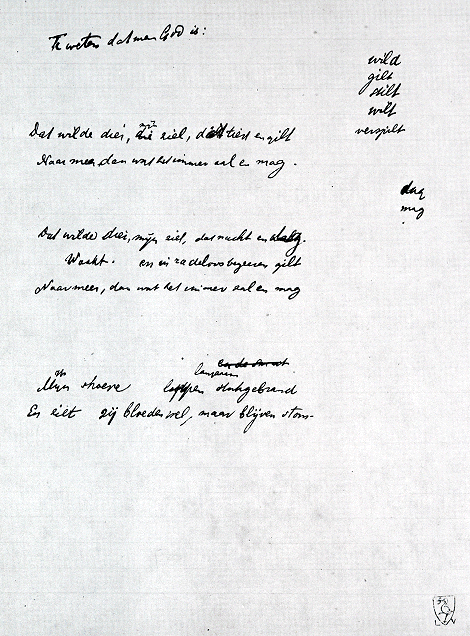 Te weten dat men God is:
wild
gilt
stilt
wilt
verspilt
Dat wilde dier, mijn ziel, dat tiert en gilt
Naar meer dan wat het immer zal en mag.
dag
mag
Dat wilde dier, mijn ziel, dat nacht en dag
Waakt. en in radeloos begeeren gilt
Naar meer, dan wat het immer zal en mag
Mijn lippen stukgebrand
En ziet zij bloeden wel, maar blijven stom-